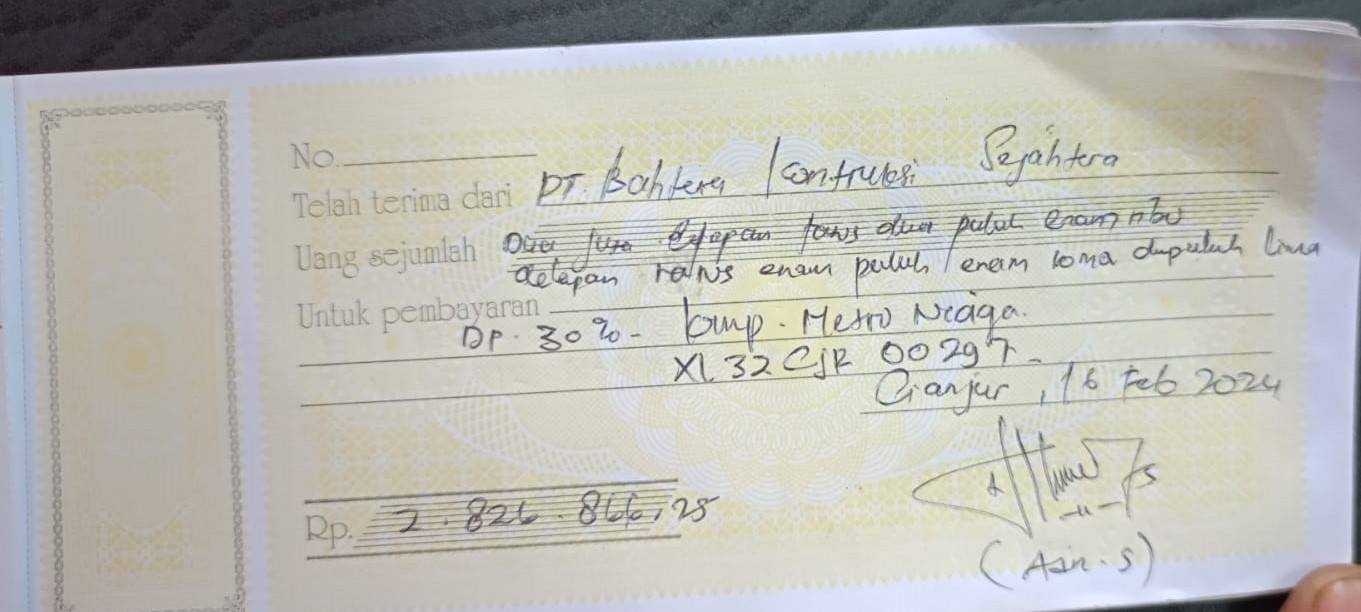 No.
Telah terima dari PT. Bahtera Kontruksi Sejahtera
Uang sejumlah Dua juta delapan ratus dua puluh enam ribu
delapan ratus enam puluh enam koma dupuluh lima
Untuk pembayaran
Dp. 30% - komp. Metro Niaga.
XL 32 CJR 00297 -
Cianjur, 16 Feb 2024
Rp. 2.826.866,25
(Asn. S)